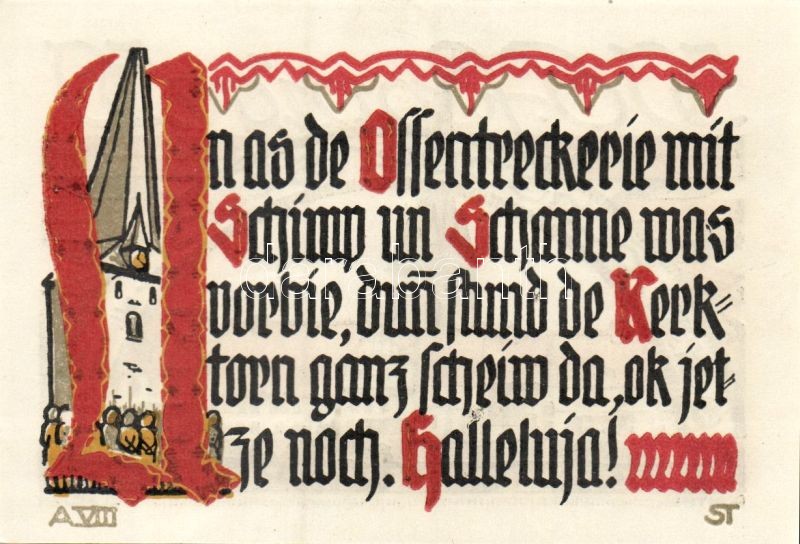 Un as de Ossentreckerie mit
Schimp un Schanne was
vorbie, dunn stund de Kerk-
torn ganz scheiw da, ok jet-
ze noch. Halleluja!
darabanth
A VIII
ST